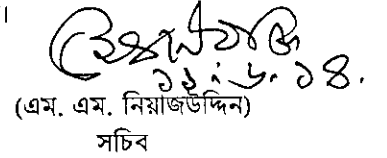 ।
১২.৬.১৪.
(এম. এম. নিয়াজউদ্দিন)
সচিব